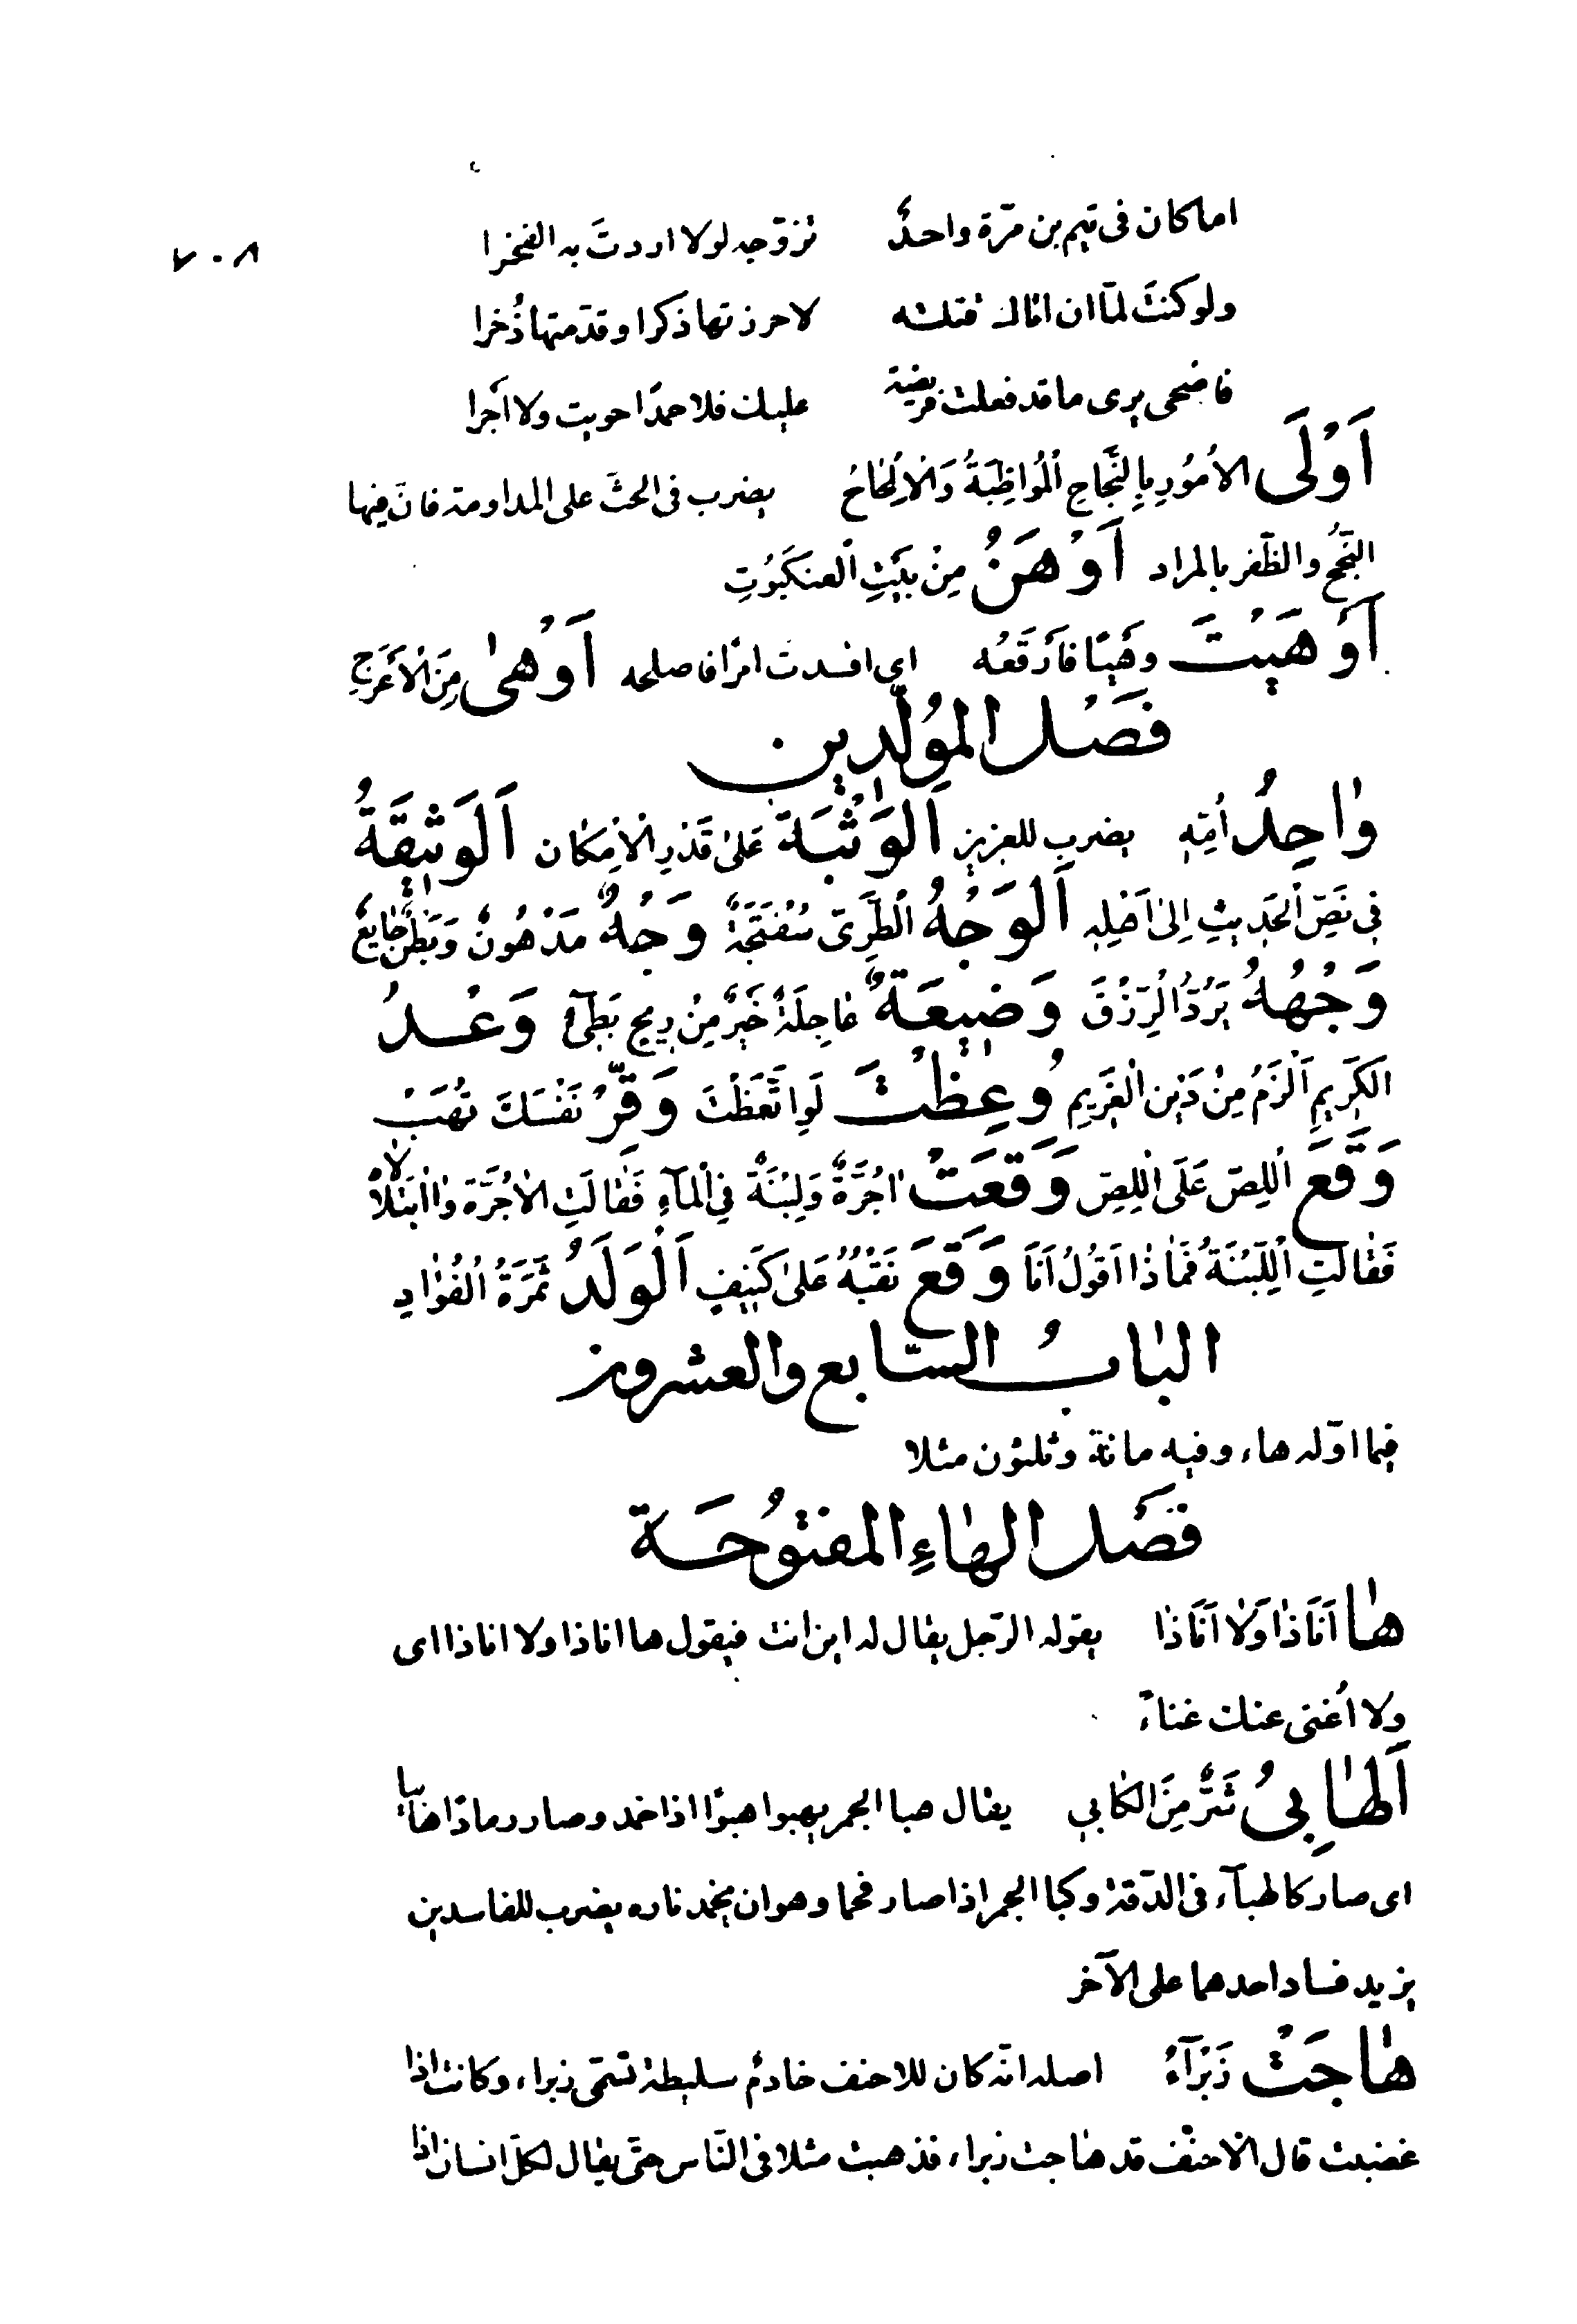 ٧٠٨
اما كان فى تيم بن مرّة واحدٌ تزوّجه لولا اردتَ به الفخرا
ولو كنتَ لمّا ان اتاك قتلته لاحرزتها ذكرا وقدّمتها ذُخرا
فاضحى يرى ما قد فعلت فريضة عليك فلا حمدًا حويت ولا أجرا
اَوْلَى الاُمُورِ بِالنَّجَاحِ اْلمُواظَبَةُ وَاْلاِلْحَاحُ يضرب فى الحثّ على المداومة فانّ فيها
النّجحُ والظّفر بالمراد اَوْهَنُ مِنْ بَيْتِ اْلعَنكَبُوتِ
اَوْهَيْتَ وَهْيًا فَأرْقَعْه اى افسدت امرًا فاصلحه اَوْهىٰ مِنَ اْلأَعْرَجِ
فصْل المولّدين
وٰاحِدُ اُمِّهِ يضرب للعزيز اَلوَثْبَةُ عَلىٰ قَدْرِ اْلاِمْكَان اَلوَثِيقَةُ
فِى نَصِّ اْلحَدِيثِ اِلىٰ اَهْلِهِ اَلوَجْهُ اْلطَّرِىّ سُفْتَجَةٌ وَجْهٌ مَدْهُونٌ وَبَطْنٌ جٰايِعٌ
وَجْهُهُ يَرُدُّ الْرِّزْقَ وَضِيعَةٌ عٰاجِلَةٌ خَيْرٌ مِنْ رِبْحٍ بَطِىءٍ وَعْدُ
الكَرِيمِ اَلْزَمُ مِنْ دَيْنِ الْغَرِيمِ وُعِظْتَ لَوِ اتَّعَظْتَ وَقِّرْ نَفْسَكَ تُهَبْ
وَقَعَ اْللِصّ عَلَى اْللِصّ وَقَعَتْ اٰجُرَّةٌ وَلَبِنَةٌ فِى اْلمَآءِ فَقٰالَتِ الاٰجُرَّةُ وٰا ابْتِلاٰلاٰهُ
فَقٰالَتِ اْللَّبِنَةُ فَمٰاذٰا اَقُولُ اَنَا وَقَعَ نَقْبُهُ عَلىٰ كَنِيفٍ اَلْوَلَدُ ثَمَرَةُ الْفُوٰادِ
البٰابُ السّابع والعشرون
فيما اوّله هاء وفيه مائة وثلثون مثلا
فصْل الهٰاءِ المفتوُحَة
هٰا اَنَا ذٰا وَلاٰ اَنَا ذٰا يقوله الرّجل يقال له اين انت فيقول ها انا ذا ولا انا ذا اى
ولا اُغنى عنك غناءً
اَلهٰابِىُ شَرٌّ مِنَ الكٰابِى يقال هبا الجمر يهبوا هبوًّا اذا خمد وصار رمادًا هابيا
اى صار كالهبآء فى الدّقة وكبا الجمر اذا صار فحما وهو ان يخمد ناره يضرب للفاسدين
يزيد فساد احدهما على الآخر
هٰاجَتْ زَبْرَآءُ اصله انّه كان للاحنف خادمٌ سليطة تسمّى زبراء وكانت اذا
غضبت قال الاحنف قد هٰاجت زبراء فذهبت مثلا فى النّاس حتّى يقال لكلّ انسان اذا